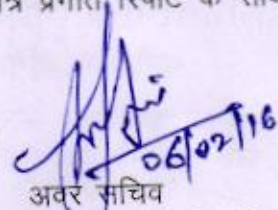 प्रगति रिपोर्ट के
06/02/16
अवर सचिव